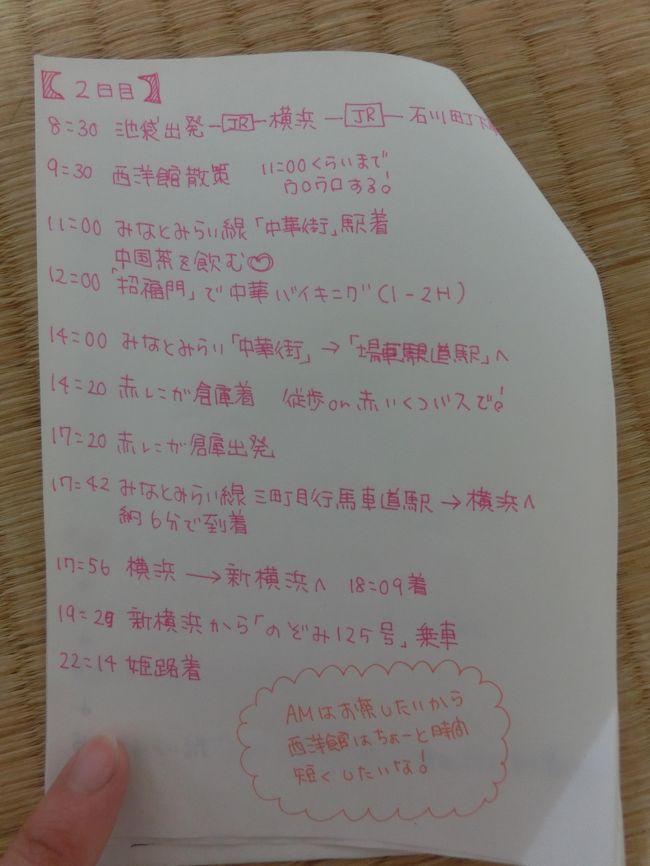 【2日目】
8:30 池袋出発 ―JR― 横浜 ―JR― 石川町下
9:30 西洋館散策 11:00くらいまで
ウロウロする!
11:00 みなとみらい線「中華街」駅着
中国茶を飲む♡
12:00 「招福門」で中華バイキング(1-2H)
14:00 みなとみらい「中華街」→「馬車道駅」へ
14:20 赤レンガ倉庫着 徒歩or赤いくつバスで!
17:20 赤レンガ倉庫出発
17:42 みなとみらい線 三町目行馬車道駅→横浜へ
約6分で到着
17:56 横浜→新横浜へ 18:09着
19:29 新横浜から「のぞみ125号」乗車
22:14 姫路着
AMはお茶したいから
西洋館はちょーと時間
短くしたいな!